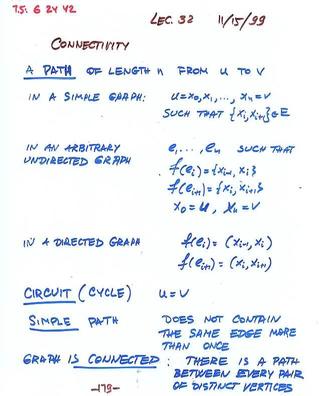 7.5: 6 24 42
LEC. 32 11/15/99
CONNECTIVITY
A PATH OF LENGTH n FROM u TO v
IN A SIMPLE GRAPH: u=x₀,x₁,..., xₙ=v
SUCH THAT {xᵢ,xᵢ₊₁}∈E
IN AN ARBITRARY e₁...,eₙ SUCH THAT
UNDIRECTED GRAPH f(eᵢ)={xᵢ₋₁,xᵢ}
f(eᵢ₊₁)={xᵢ,xᵢ₊₁}
x₀=u, xₙ=v
IN A DIRECTED GRAPH f(eᵢ)=(xᵢ₋₁,xᵢ)
f(eᵢ₊₁)=(xᵢ,xᵢ₊₁)
CIRCUIT (CYCLE) u=v
SIMPLE PATH DOES NOT CONTAIN
THE SAME EDGE MORE
THAN ONCE
GRAPH IS CONNECTED: THERE IS A PATH
BETWEEN EVERY PAIR
OF DISTINCT VERTICES
-179-